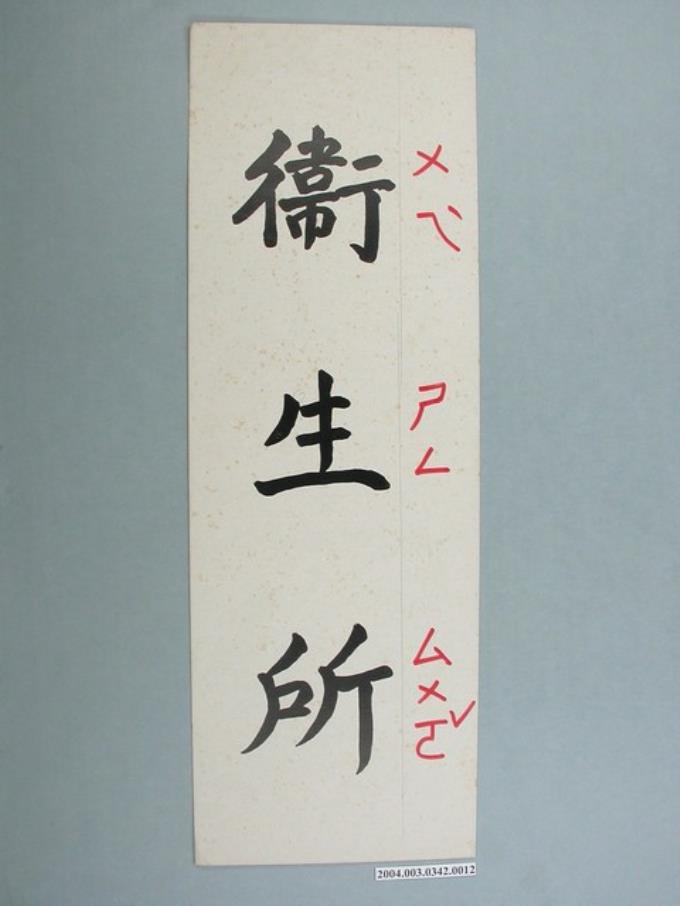 衞生所
ㄨㄟˋ ㄕㄥ ㄙㄨㄛˇ
2004.003.0342.0012